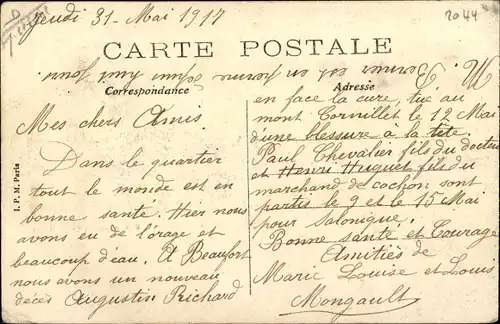 Jeudi 31 - Mai 1917
2044
CARTE POSTALE
Mr Bernier est en permi
Correspondance
Adresse
Mes chers Amis.
Dans le quartier
tout le monde est en
bonne santé. Hier nous
avons eu de l'orage et
beaucoup d'eau. A Beaufort
nous avons un nouveau
décés Augustin Richard
en face la cure, tué au
mont Cornillet le 12 Mai
d'une blessure a la tête
Paul Chevalier fils du docteur
et Henri Huguet fils du
marchand de cochon sont
partis le 9 et le 15 Mai
pour Salonique.
Bonne santé et Courage
Amitiés de
Marie Louise et Louis
Mongault
I. P. M. Paris